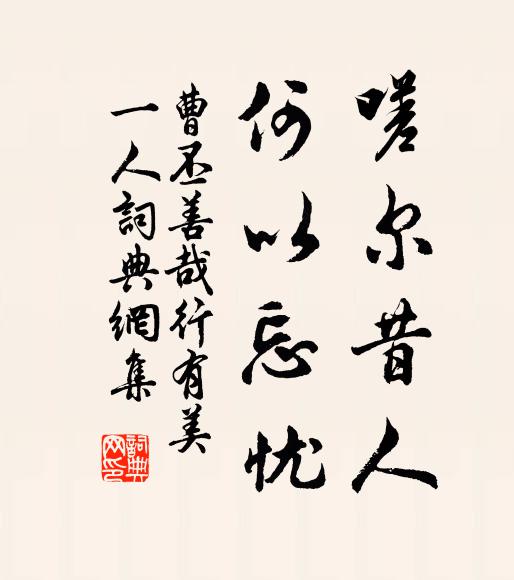 嗟尔昔人
何以忘忧
曹丕善哉行有美
一人詞典網集
詞典
网印